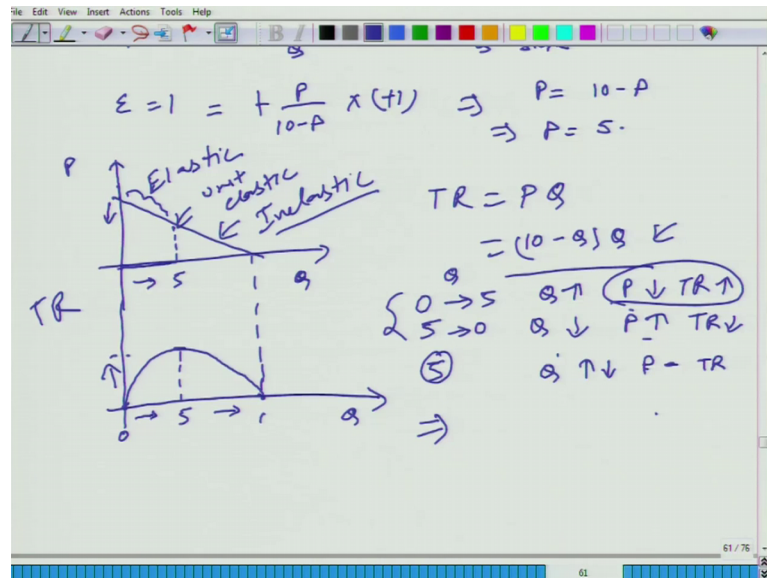 File Edit View Insert Actions Tools Help
Q
ε = 1 = + P/(10-P) × (+1) ⇒ P = 10 - P
⇒ P = 5.
P
Elastic
unit elastic
Inelastic
→ 5 Q
TR = PQ
= (10 - Q) Q
Q
0 → 5 Q ↑ P ↓ TR ↑
5 → 0 Q ↓ P ↑ TR ↓
5 Q ↑↓ P - TR
⇒
TR
0 → 5 → Q
61 / 76
61